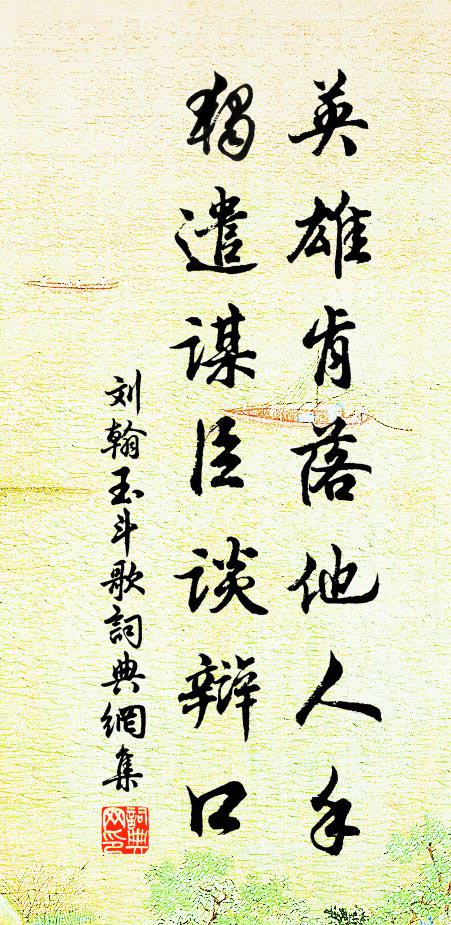 英雄肯落他人手
独遣谋臣谈辩口
刘翰玉斗歌詞典網集
詞典网印